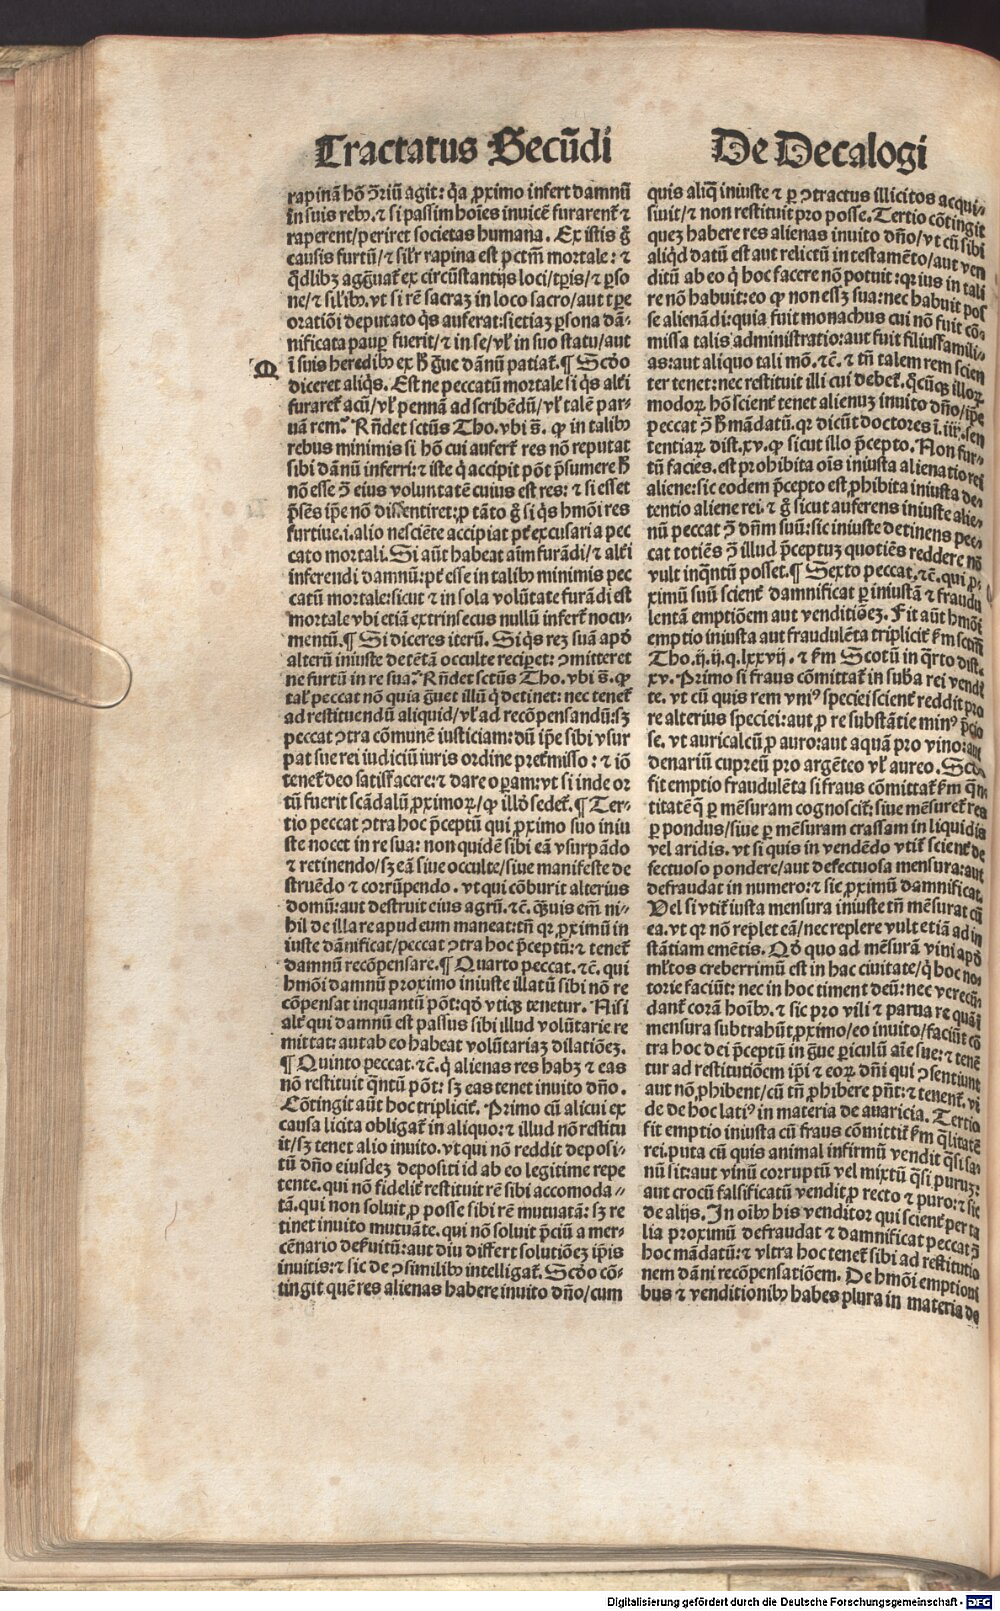 Tractatus Secūdi
De Decalogi
rapinā hō ɔ̄riū agit: q̄a ꝓximo infert damnū
in suis rebꝰ. ⁊ si passim hoīes inuicē furarent̄ ⁊
raperent/periret societas humana. Ex istis g̊
causis furtū/⁊ sil'r rapina est pctm̄ mortale: ⁊
q̄dlibꝫ aggͣuat̄ ex circūstantijs loci/tp̄is/⁊ ꝑso
ne/⁊ sil'ibꝰ. vt si rē sacraꝫ in loco sacro/aut tꝑe
oratiōi deputato q̄s auferat: si etiaꝫ ꝑsona dā⸗
nificata pauꝑ fuerit/⁊ in se/vl' in suo statu/aut
ī suis heredibꝰ ex h̄ gͣue dānū patiat̄. ¶ Scd̄o
M
diceret aliq̄s. Est ne peccatū mortale si q̄s alt̄i
furaret̄ acū/vl' pennā ad scribēdū/vl' talē par⸗
uā rem? Rn̄det sctūs Tho. vbi s̄. ꝙ in talibꝰ
rebus minimis si hō cui aufert̄ res nō reputat
sibi dānū inferri: ⁊ iste q̄ accipit pōt p̄sumere h̄
nō esse ɔ̄ eius voluntatē cuius est res: ⁊ si esset
p̄sēs ip̄e nō dissentiret: ꝓ tāto g̊ si q̄s hmōi res
furtiue.i.alio nesciēte accipiat pt̄ excusari a pec
cato mortali. Si aūt habeat aīm furādi/⁊ alt̄i
inferendi damnū: pt̄ esse in talibꝰ minimis pec
catū mortale: sicut ⁊ in sola volūtate furādi est
mortale vbi etiā extrinsecus nullū infert̄ nocu⸗
mentū. ¶ Si diceres iterū. Si q̄s reꝫ suā apd̄
alterū iniuste detētā occulte reciꝑet: ɔmitteret
ne furtū in re sua? Rn̄det sctūs Tho. vbi s̄. ꝙ
tal' peccat nō quia gͣuet illū q̄ detinet: nec tenet̄
ad restituendū aliquid/vl' ad recōpensandū: sꝫ
peccat ɔtra cōmunē iusticiam: dū ip̄e sibi vsur
pat sue rei iudiciū iuris ordine pret̄misso: ⁊ iō
tenet̄ deo satisfacere: ⁊ dare oꝑam: vt si inde or
tū fuerit scādalū ꝓximoꝝ/ꝙ illd̄ sedet̄. ¶ Ter⸗
tio peccat ɔtra hoc p̄ceptū qui ꝓximo suo iniu
ste nocet in re sua: non quidē sibi eā vsurpādo
⁊ retinendo/sꝫ eā siue occulte/siue manifeste de
struēdo ⁊ corrūpendo. vt qui cōburit alterius
domū: aut destruit eius agrū. ⁊c̄. q̄uis em̄ ni⸗
hil de illa re apud eum maneat: tn̄ qꝛ ꝓximū in
iuste dānificat/peccat ɔtra hoc p̄ceptū: ⁊ tenet̄
damnū recōpensare. ¶ Quarto peccat. ⁊c̄. qui
hmōi damnū proximo iniuste illatū sibi nō re
cōpensat inquantū pōt: qd̄ vtiqꝫ tenetur. Nisi
alt̄ qui damnū est passus sibi illud volūtarie re
mittat: aut ab eo habeat volūtariaꝫ dilatiōeꝫ.
¶ Quinto peccat. ⁊c̄. q̄ alienas res habꝫ ⁊ eas
nō restituit q̄ntū pōt: sꝫ eas tenet inuito dn̄o.
Cōtingit aūt hoc triplicit̄. Primo cū alicui ex
causa licita obligat̄ in aliquo: ⁊ illud nō restitu
it/sꝫ tenet alio inuito. vt qui nō reddit deposi⸗
tū dn̄o eiusdeꝫ depositi id ab eo legitime repe
tente. qui nō fidelit̄ restituit rē sibi accomoda⸗
tā. qui non soluit ꝓ posse sibi rē mutuatā: sꝫ re
tinet inuito mutuāte. qui nō soluit p̄ciū a mer⸗
cēnario deſuitū: aut diu differt solutiōeꝫ ip̄is
inuitis: ⁊ sic de ɔsimilibꝰ intelligat̄. Scd̄o cō⸗
tingit quē res alienas habere inuito dn̄o/cum
quis aliq̄ iniuste ⁊ ꝑ ɔtractus illicitos acqui⸗
siuit/⁊ non restituit pro posse. Tertio cōtingit
queꝫ habere res alienas inuito dn̄o/vt cū sibi
aliq̄d datū est aut relictū in testamēto/aut ven
ditū ab eo q̄ hoc facere nō potuit: qꝛ ius in tali
re nō habuit: eo ꝙ non essꝫ sua: nec habuit pos
se alienādi: quia fuit monachus cui nō fuit cō⸗
missa talis administratio: aut fuit filiusfamili⸗
as: aut aliquo tali mō. ⁊c̄. ⁊ tn̄ talem rem scien
ter tenet: nec restituit illi cui debet̄. q̄cūqꝫ illoꝝ
modoꝝ hō scient̄ tenet alienuꝫ inuito dn̄o/ip̄e
peccat ɔ̄ h̄ mādatū. qꝛ dicūt doctores ī.iiij. sen
tentiaꝝ dist.xv. ꝙ sicut illo p̄cepto. Non fur⸗
tū facies. est prohibita oīs iniusta alienatio rei
aliene: sic eodem p̄cepto est ꝓhibita iniusta de⸗
tentio aliene rei. ⁊ g̊ sicut auferens iniuste alie⸗
nū peccat ɔ̄ dn̄m suū: sic iniuste detinens pec⸗
cat totiēs ɔ̄ illud p̄ceptuꝫ quotiēs reddere nō
vult inq̄ntū posset. ¶ Sexto peccat. ⁊c̄. qui ꝓ⸗
ximū suū scient̄ damnificat ꝑ iniustā ⁊ fraudu
lentā emptiōem aut venditiōeꝫ. Fit aūt hmōi
emptio iniusta aut fraudulēta triplicit̄ ẜm sctm̄
Tho.ij.ij.q.lxxvij. ⁊ ẜm Scotū in q̄rto dist.
xv. Primo si fraus cōmittat̄ in suba rei vendi
te. vt cū quis rem vniꝰ speciei scient̄ reddit pro
re alterius speciei: aut ꝓ re substātie minꝰ p̄cio
se. vt auricalcū ꝓ auro: aut aquā pro vino: aut
denariū cupreū pro argēteo vl' aureo. Scd̄o
fit emptio fraudulēta si fraus cōmittat̄ ẜm q̄n⸗
titatē q̄ ꝑ mēsuram cognoscit̄: siue mēsuret̄ res
ꝑ pondus/siue ꝑ mēsuram crassam in liquidis
vel aridis. vt si quis in vendēdo vtit̄ scient̄ de
fectuoso pondere/aut defectuosa mensura: aut
defraudat in numero: ⁊ sic ꝓximū damnificat.
Vel si vtit̄ iusta mensura iniuste tn̄ mēsurat cū
ea. vt qꝛ nō replet eā/nec replere vult etiā ad in
stātiam emētis. Qd̄ quo ad mēsurā vini apd̄
ml'tos creberrimū est in hac ciuitate/q̄ hoc no⸗
torie faciūt: nec in hoc timent deū: nec verecū⸗
dant̄ corā hoībꝰ. ⁊ sic pro vili ⁊ parua re quā ī
mensura subtrahūt ꝓximo/eo inuito/faciūt cō
tra hoc dei p̄ceptū in gͣue ꝑiculū aīe sue: ⁊ tenē
tur ad restitutiōem ip̄i ⁊ eoꝝ dn̄i qui ɔsentiunt
aut nō ꝓhibent/cū tn̄ ꝓhibere pn̄t: ⁊ tenent̄. vi
de de hoc latiꝰ in materia de auaricia. Tertio
fit emptio iniusta cū fraus cōmittit̄ ẜm q̄litatē
rei. puta cū quis animal infirmū vendit q̄si sa⸗
nū sit: aut vinū corruptū vel mixtū q̄si puruꝫ:
aut crocū falsificatū vendit ꝓ recto ⁊ puro: ⁊ sic
de alijs. In oībꝰ his venditor qui scient̄ per ta
lia proximū defraudat ⁊ damnificat peccat ɔ̄
hoc mādatū: ⁊ vltra hoc tenet̄ sibi ad restitutio
nem dāni recōpensatiōem. De hmōi emptioni
bus ⁊ venditionibꝰ habes plura in materia de
Digitalisierung gefördert durch die Deutsche Forschungsgemeinschaft - DFG